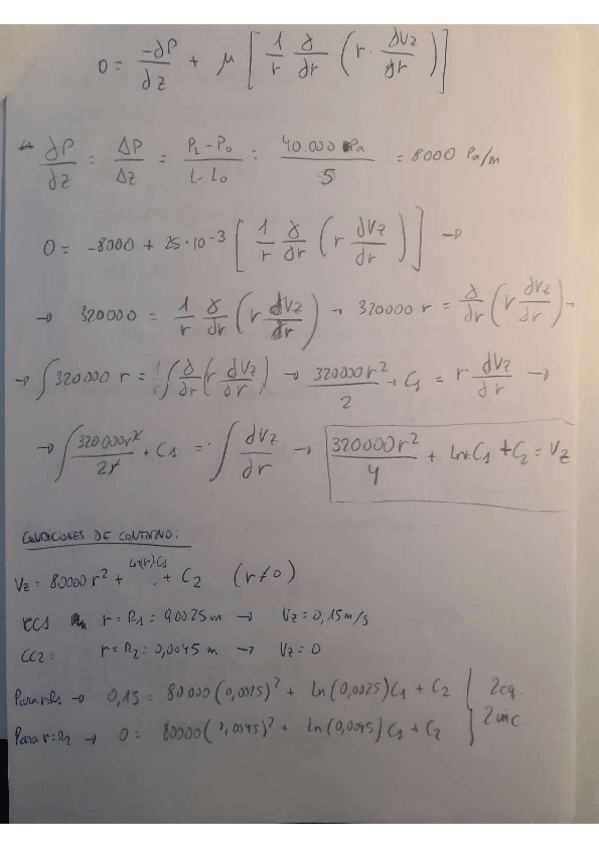 0 = -∂P/∂z + μ [ 1/r ∂/∂r ( r · ∂Vz/∂r ) ]
∂P/∂z = ΔP/Δz = PL - P0 / L - L0 = 40.000 Pa / 5 = 8000 Pa/m
0 = -8000 + 25·10⁻³ [ 1/r ∂/∂r ( r dVz/dr ) ] →
→ 320000 = 1/r ∂/∂r ( r dVz/dr ) → 320000 r = ∂/∂r ( r dVz/dr ) →
→ ∫ 320000 r = ∫ ∂/∂r ( r dVz/∂r ) → 320000 r²/2 + C1 = r · dVz/∂r →
→ ∫ 320000 r²/2r + C1 = ∫ dVz/∂r → 320000 r²/4 + ln r · C1 + C2 = Vz
CONDICIONES DE CONTORNO:
Vz = 80000 r² + ln(r)·C1 + C2 (r ≠ 0)
CC1: r = R1 = 0,0025 m → Vz = 0,15 m/s
CC2: r = R2 = 0,0045 m → Vz = 0
Para r=R1 → 0,15 = 80000 (0,0025)² + ln (0,0025) C1 + C2 } 2 ec.
Para r=R2 → 0 = 80000 (0,0045)² + ln (0,0045) C1 + C2 } 2 inc